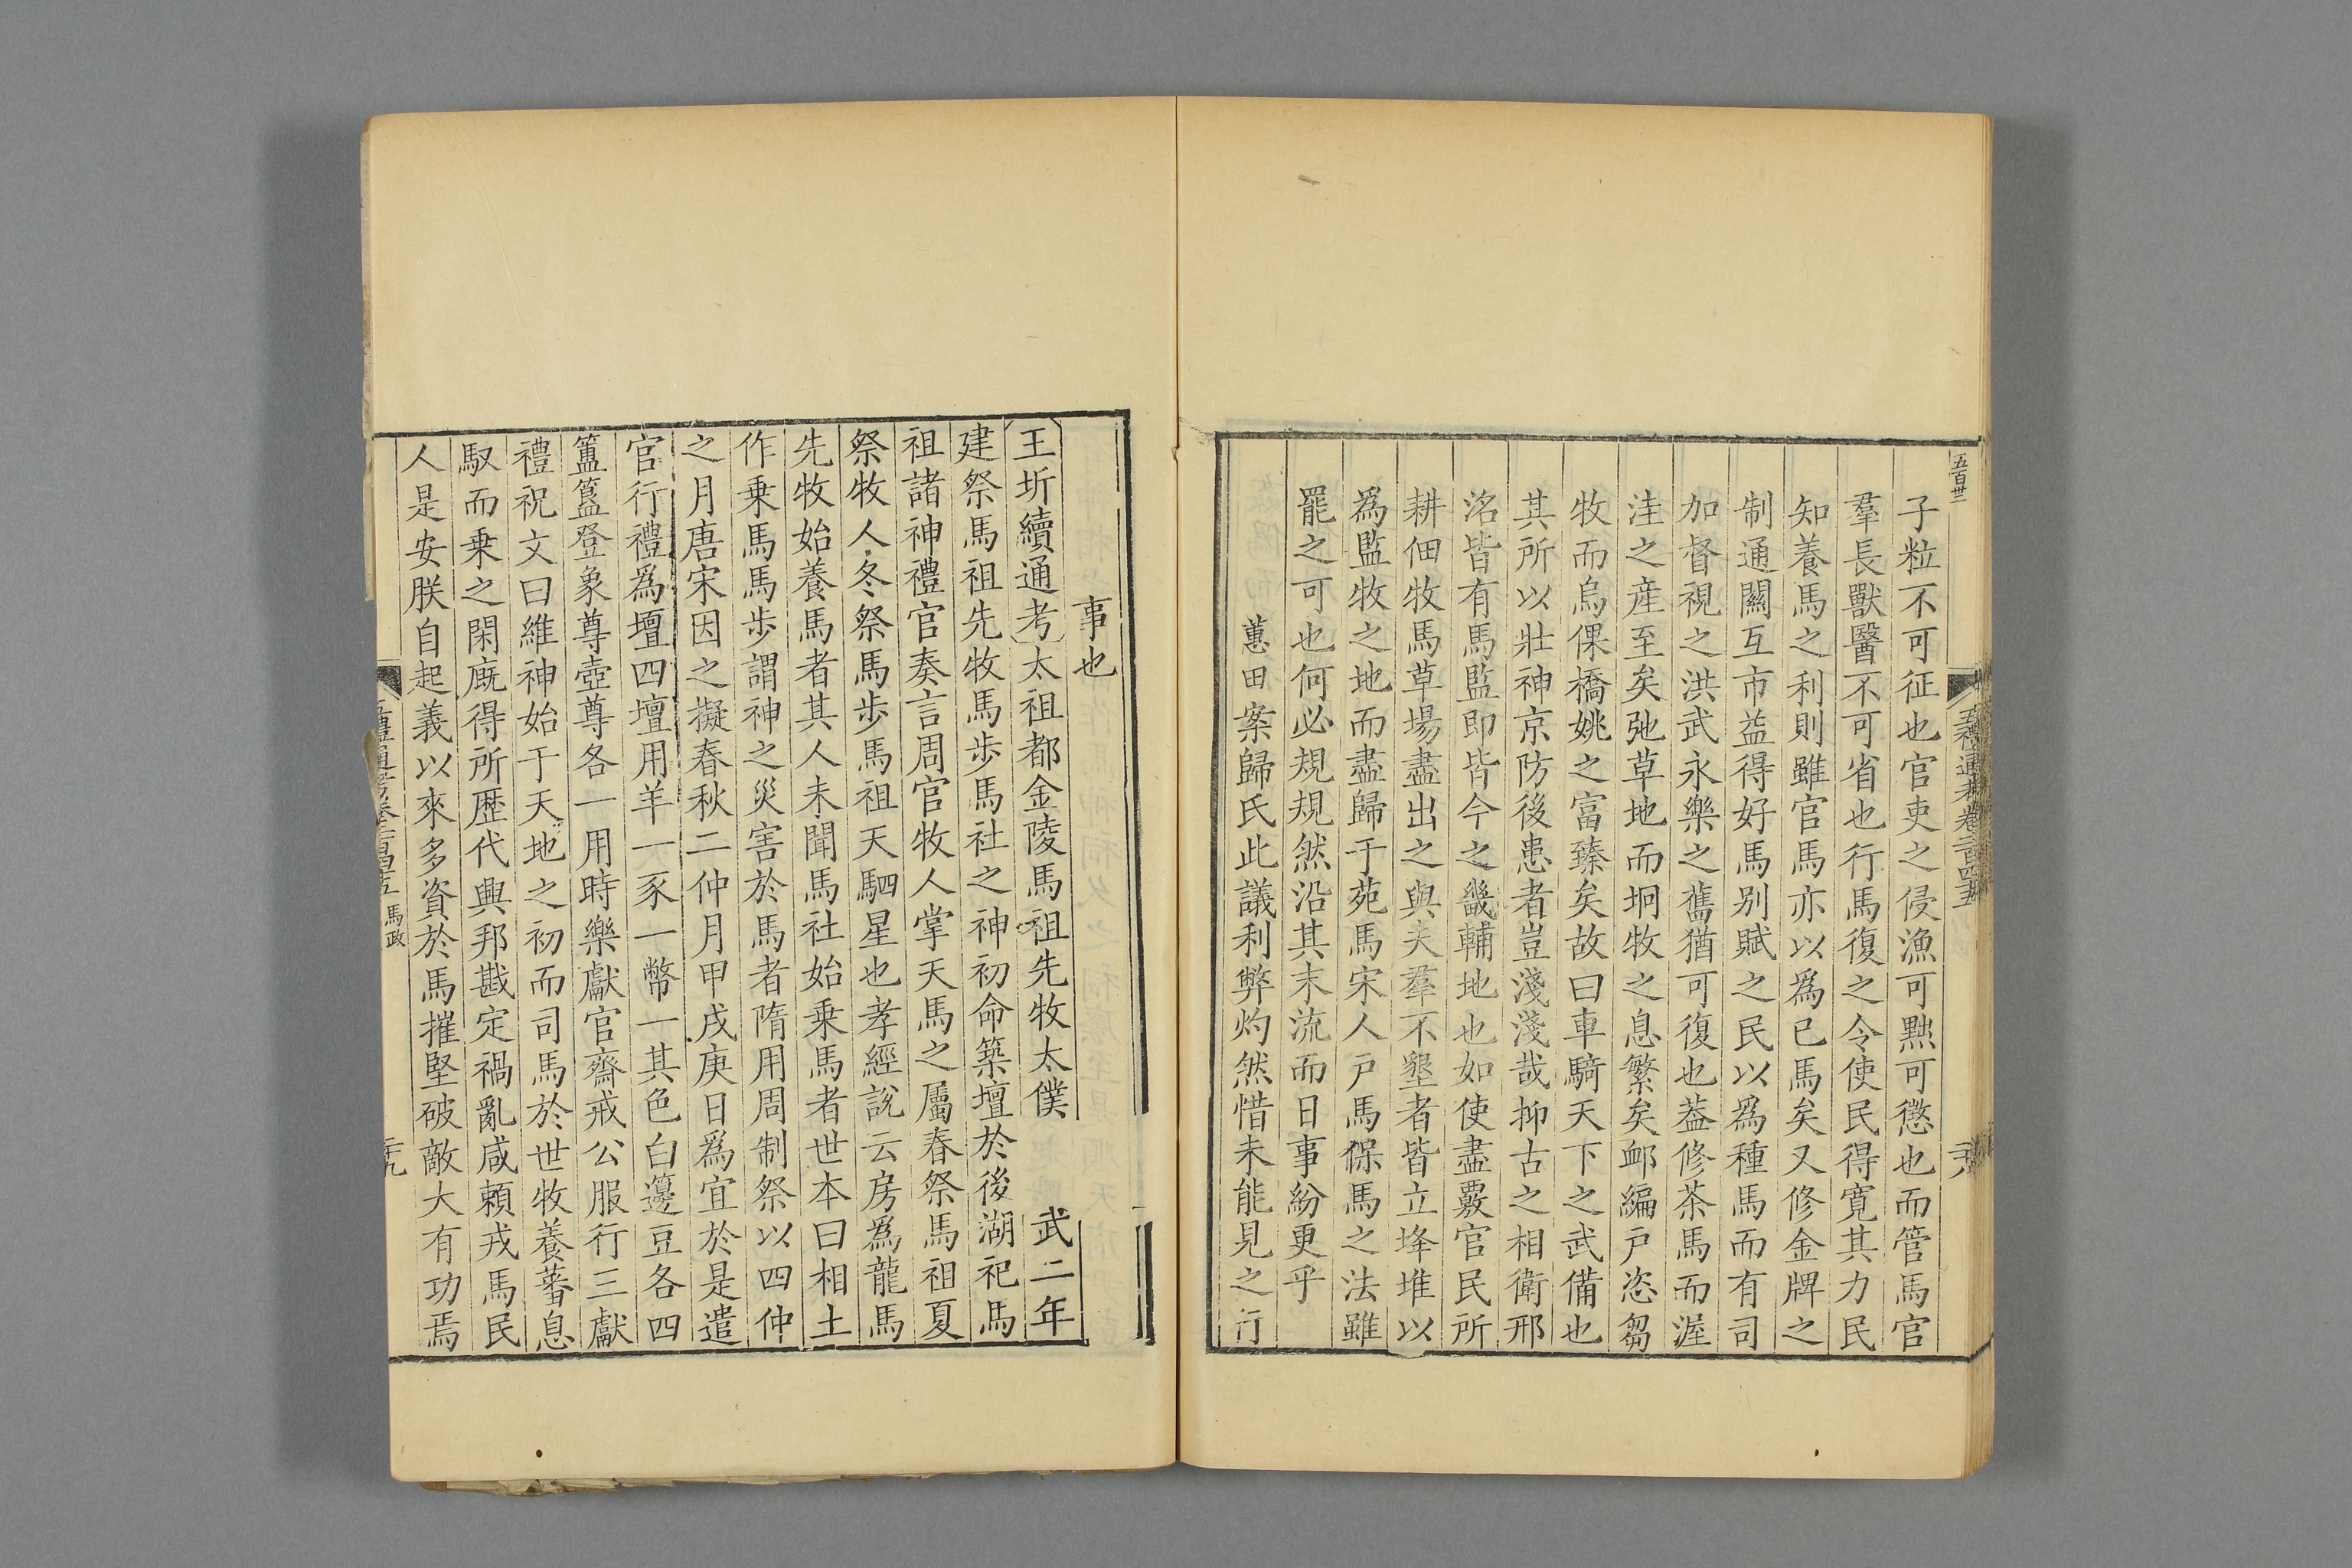 五百卅二
五禮通考卷二百四十五
二十八
子粒不可征也官吏之侵漁可黜可懲也而管馬官
羣長獸醫不可省也行馬復之令使民得寬其力民
知養馬之利則雖官馬亦以爲已馬矣又修金牌之
制通關互市益得好馬别賦之民以爲種馬而有司
加督視之洪武永樂之舊猶可復也葢修茶馬而渥
洼之産至矣弛草地而坰牧之息繁矣卹編戸恣芻
牧而烏倮橋姚之富臻矣故曰車騎天下之武備也
其所以壯神京防後患者豈淺淺哉抑古之相衛邢
洺皆有馬監即皆今之畿輔地也如使盡覈官民所
耕佃牧馬草場盡出之與夫羣不墾者皆立埄堆以
爲監牧之地而盡歸于苑馬宋人戸馬保馬之法雖
罷之可也何必規規然沿其末流而日事紛更乎
蕙田案歸氏此議利弊灼然惜未能見之行
事也
王圻續通考太祖都金陵馬祖先牧太僕 武二年
建祭馬祖先牧馬步馬社之神初命築壇於後湖祀馬
祖諸神禮官奏言周官牧人掌天馬之屬春祭馬祖夏
祭牧人冬祭馬步馬祖天駟星也孝經說云房爲龍馬
先牧始養馬者其人未聞馬社始乗馬者世本曰相土
作乗馬馬步謂神之災害於馬者隋用周制祭以四仲
之月唐宋因之擬春秋二仲月甲戌庚日爲宜於是遣
官行禮爲壇四壇用羊一豕一幣一其色白籩豆各四
簠簋登象尊壺尊各一用時樂獻官齋戒公服行三獻
禮祝文曰維神始于天地之初而司馬於世牧養蕃息
馭而乗之閑廐得所歴代興邦戡定禍亂咸頼戎馬民
人是安朕自起義以來多資於馬摧堅破敵大有功焉
五禮通考卷二百四十五 馬政
二十九